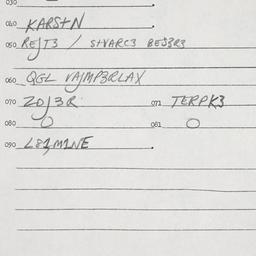 030
040 KARS+N
050 REJT3 / S+VARC3 BES3R3
060 QGL VAJMP3RLAX
070 ZOJ3R 071 TERPK3
080 O 081 O
090 L81M1NE